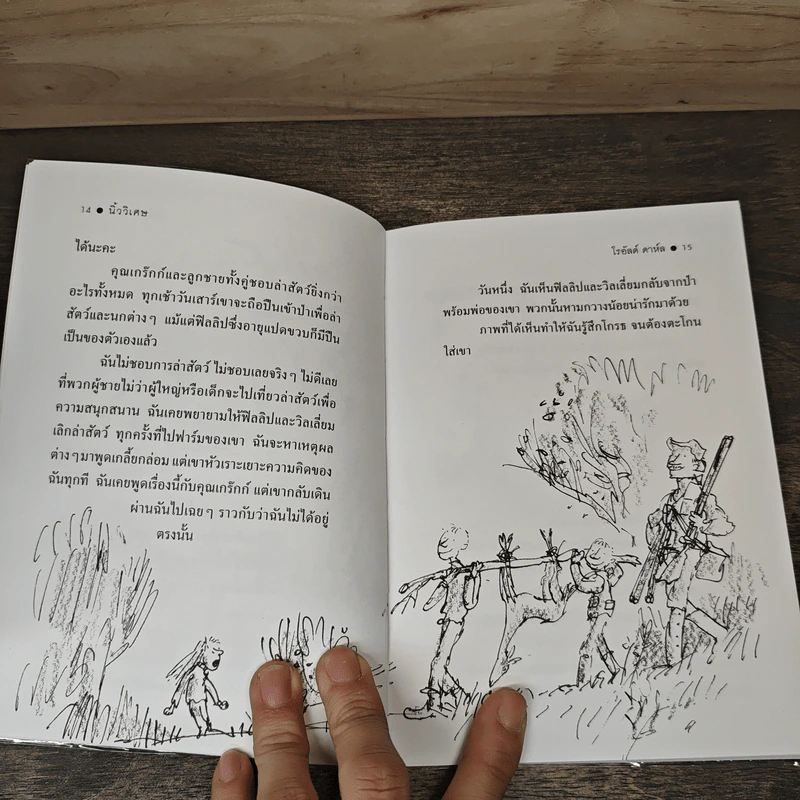 14 ● นิ้ววิเศษ
ได้นะคะ
คุณเกร๊กก์และลูกชายทั้งคู่ชอบล่าสัตว์ยิ่งกว่า
อะไรทั้งหมด ทุกเช้าวันเสาร์เขาจะถือปืนเข้าป่าเพื่อล่า
สัตว์และนกต่างๆ แม้แต่ฟิลลิปซึ่งอายุแปดขวบก็มีปืน
เป็นของตัวเองแล้ว
ฉันไม่ชอบการล่าสัตว์ ไม่ชอบเลยจริงๆ ไม่ดีเลย
ที่พวกผู้ชายไม่ว่าผู้ใหญ่หรือเด็กจะไปเที่ยวล่าสัตว์เพื่อ
ความสนุกสนาน ฉันเคยพยายามให้ฟิลลิปและวิลเลี่ยม
เลิกล่าสัตว์ ทุกครั้งที่ไปฟาร์มของเขา ฉันจะหาเหตุผล
ต่างๆมาพูดเกลี้ยกล่อม แต่เขาหัวเราะเยาะความคิดของ
ฉันทุกที ฉันเคยพูดเรื่องนี้กับคุณเกร๊กก์ แต่เขากลับเดิน
ผ่านฉันไปเฉยๆ ราวกับว่าฉันไม่ได้อยู่
ตรงนั้น
โรอัลด์ ดาห์ล ● 15
วันหนึ่ง ฉันเห็นฟิลลิปและวิลเลี่ยมกลับจากป่า
พร้อมพ่อของเขา พวกนั้นหามกวางน้อยน่ารักมาด้วย
ภาพที่ได้เห็นทำให้ฉันรู้สึกโกรธ จนต้องตะโกน
ใส่เขา